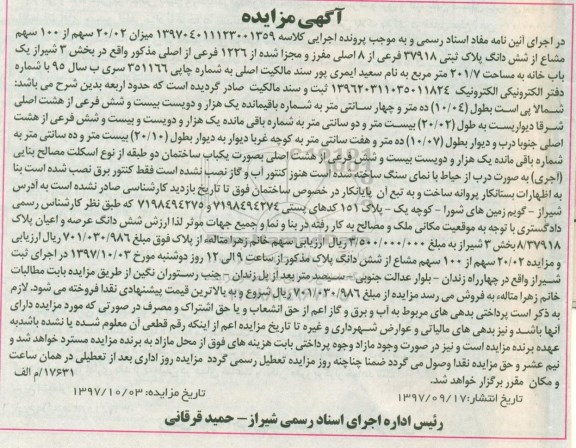 آگهی مزایده
در اجرای آئین نامه مفاد اسناد رسمی و به موجب پرونده اجرایی کلاسه ۱۳۹۷۰۴۰۱۱۱۲۳۰۰۱۳۵۹ میزان ۲۰/۰۲ سهم از ۱۰۰ سهم
مشاع از شش دانگ پلاک ثبتی ۳۷۹۱۸ فرعی از ۸ اصلی مفرز و مجزا شده از ۱۲۲۶ فرعی از اصلی مذکور واقع در بخش ۳ شیراز یک
باب خانه به مساحت ۲۰۱/۷ متر مربع به نام سعید ایمری پور سند مالکیت اصلی به شماره چاپی ۳۵۱۱۶۶ سری ب سال ۹۵ با شماره
دفتر الکترونیکی الکترونیک ۱۳۹۶۲۰۳۱۱۰۳۵۰۱۱۸۲۴ ثبت و سند مالکیت صادر گردیده است که حدود اربعه بدین شرح می باشد:
شمالا پی است بطول (۱۰/۰۴) ده متر و چهار سانتی متر به شماره باقیمانده یک هزار و دویست بیست و شش فرعی از هشت اصلی
شرقا دیواریست به طول (۲۰/۰۲) بیست متر و دو سانتی متر به شماره باقی مانده یک هزار و دویست و بیست و شش فرعی از هشت
اصلی جنوبا درب و دیوار بطول (۱۰/۰۷) ده متر و هفت سانتی متر به کوچه غربا دیوار به دیوار بطول (۲۰/۱۰) بیست متر و ده سانتی متر به
شماره باقی مانده یک هزار و دویست بیست و شش فرعی از هشت اصلی بصورت یکباب ساختمان دو طبقه از نوع اسکلت مصالح بنایی
(اجری) به صورت درب از حیاط با نمای سنگ ساخته شده است هنوز کنتور آب و گاز نصب نشده است فقط کنتور برق نصب شده است بنا
به اظهارات بستانکار پروانه ساخت و به تبع ان پایانکار در خصوص ساختمان فوق تا تاریخ بازدید کارشناسی صادر نشده است به آدرس
شیراز - گویم زمین های شورا - کوچه یک - پلاک ۱۵۱ کدهای پستی ۷۱۹۸۴۹۴۲۷۴ و ۷۱۹۸۴۹۴۲۷۵ که طبق نظر کارشناس رسمی
دادگستری با توجه به موقعیت مکانی ملک و مصالح به کار رفته در بنا و نما و جمیع جهات موثر لذا ارزش شش دانگ عرصه و اعیان پلاک
۸/۳۷۹۱۸ بخش ۳ شیراز به مبلغ ۳/۵۰۰/۰۰۰/۰۰۰ ریال ارزیابی سهم خانم زهرا متاله از پلاک فوق مبلغ ۷۰۱/۰۳۰/۹۸۶ ریال ارزیابی
و مزایده ۲۰/۰۲ سهم از ۱۰۰ سهم مشاع از شش دانگ پلاک مذکور از ساعت ۹ الی ۱۲ روز دوشنبه مورخ ۱۳۹۷/۱۰/۰۳ در اجرای ثبت
شیراز واقع در چهارراه زندان - بلوار عدالت جنوبی - سیصد متر بعد از پل زندان - جنب رستوران نگین از طریق مزایده بابت مطالبات
خانم زهرا متاله، به فروش می رسد مزایده از مبلغ ۷۰۱/۰۳۰/۹۸۶ ریال شروع و به بالاترین قیمت پیشنهادی نقدا فروخته می شود. لازم
به ذکر است پرداختی بدهی های مربوط به آب و برق و گاز اعم از حق انشعاب و یا حق اشتراک و مصرف در صورتی که مورد مزایده دارای
آنها باشد و نیز بدهی های مالیاتی و عوارض شهرداری و غیره تا تاریخ مزایده اعم از اینکه رقم قطعی آن معلوم شده یا نشده باشد به
عهده برنده مزایده است و نیز در صورت وجود مازاد وجوه پرداختی بابت هزینه های فوق از محل مازاد به برنده مزایده مسترد خواهد شد و
نیم عشر و حق مزایده نقدا وصول می گردد ضمنا چنانچه روز مزایده تعطیل رسمی گردد مزایده روز اداری بعد از تعطیلی در همان ساعت
و مکان مقرر برگزار خواهد شد. ۱۷۶۳۱/م الف
تاریخ انتشار: ۱۳۹۷/۰۹/۱۷ تاریخ مزایده: ۱۳۹۷/۱۰/۰۳
رئیس اداره اجرای اسناد رسمی شیراز - حمید قرقانی